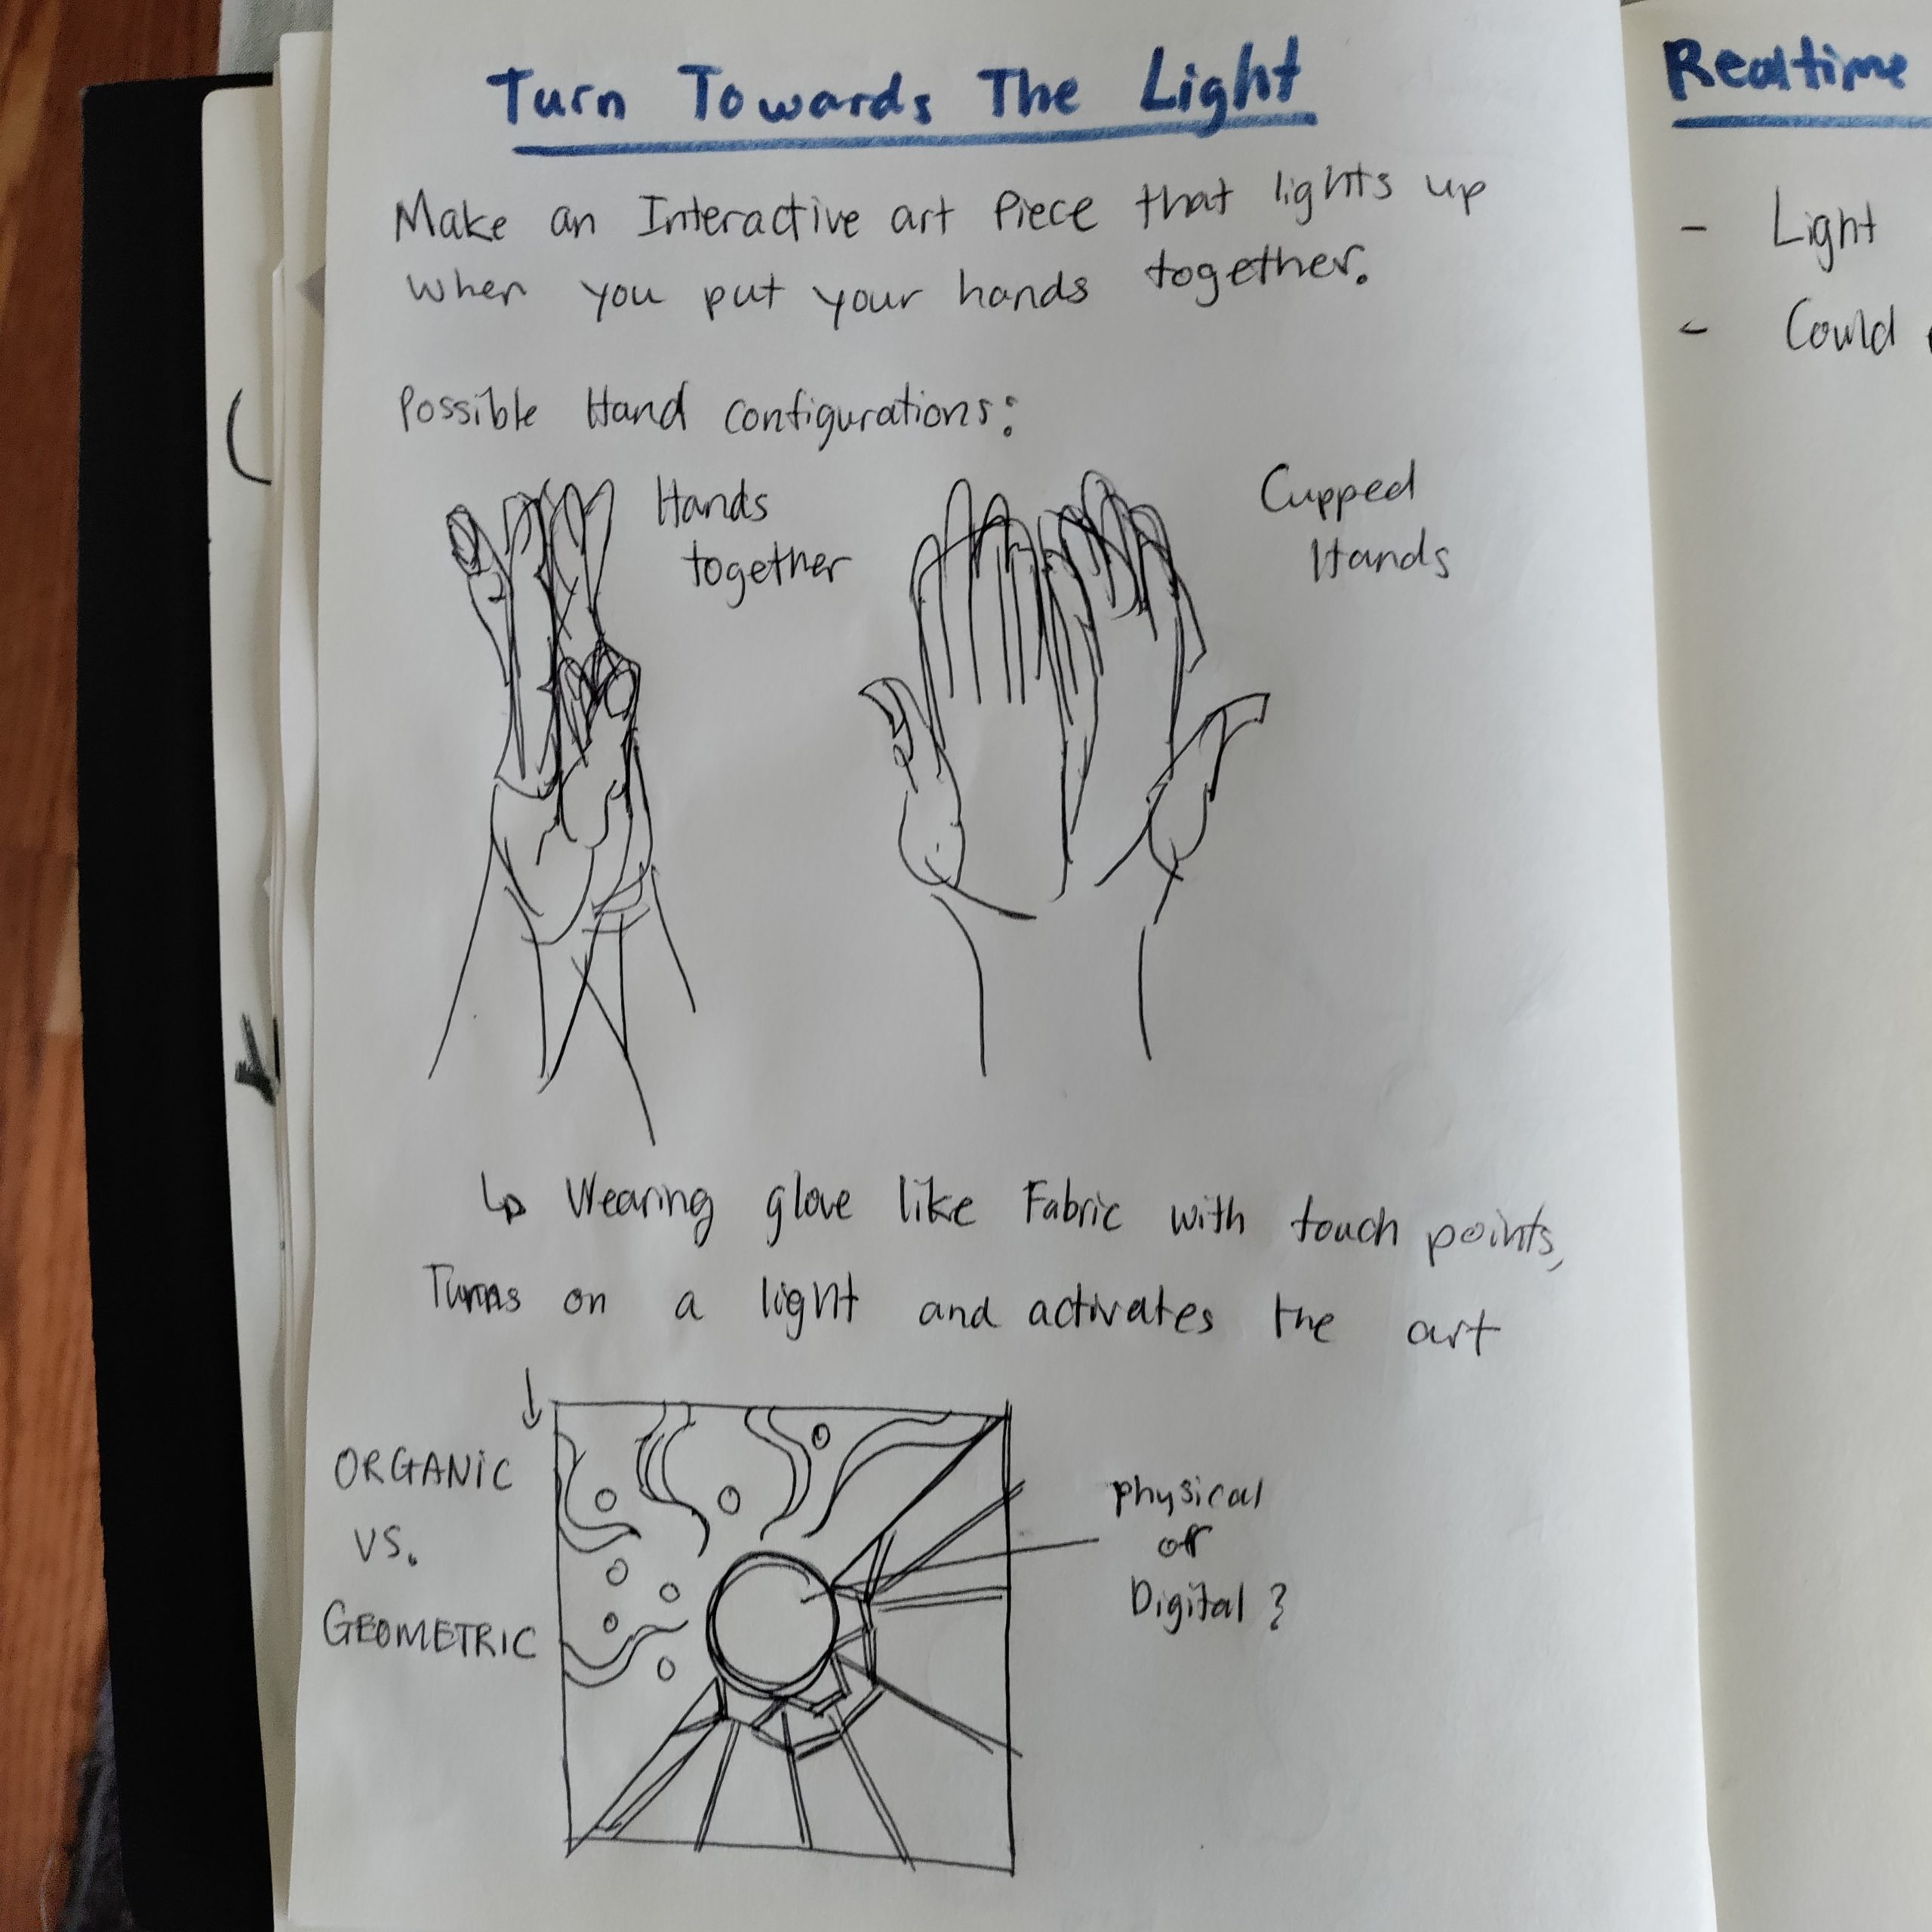 Turn Towards The Light
Make an Interactive art Piece that lights up
when you put your hands together.
Possible Hand configurations:
Hands
together
Cupped
Hands
↳ Wearing glove like Fabric with touch points,
Turns on a light and activates the art
↓
ORGANIC
VS.
GEOMETRIC
Physical
or
Digital?
Realtime
- Light
- Could